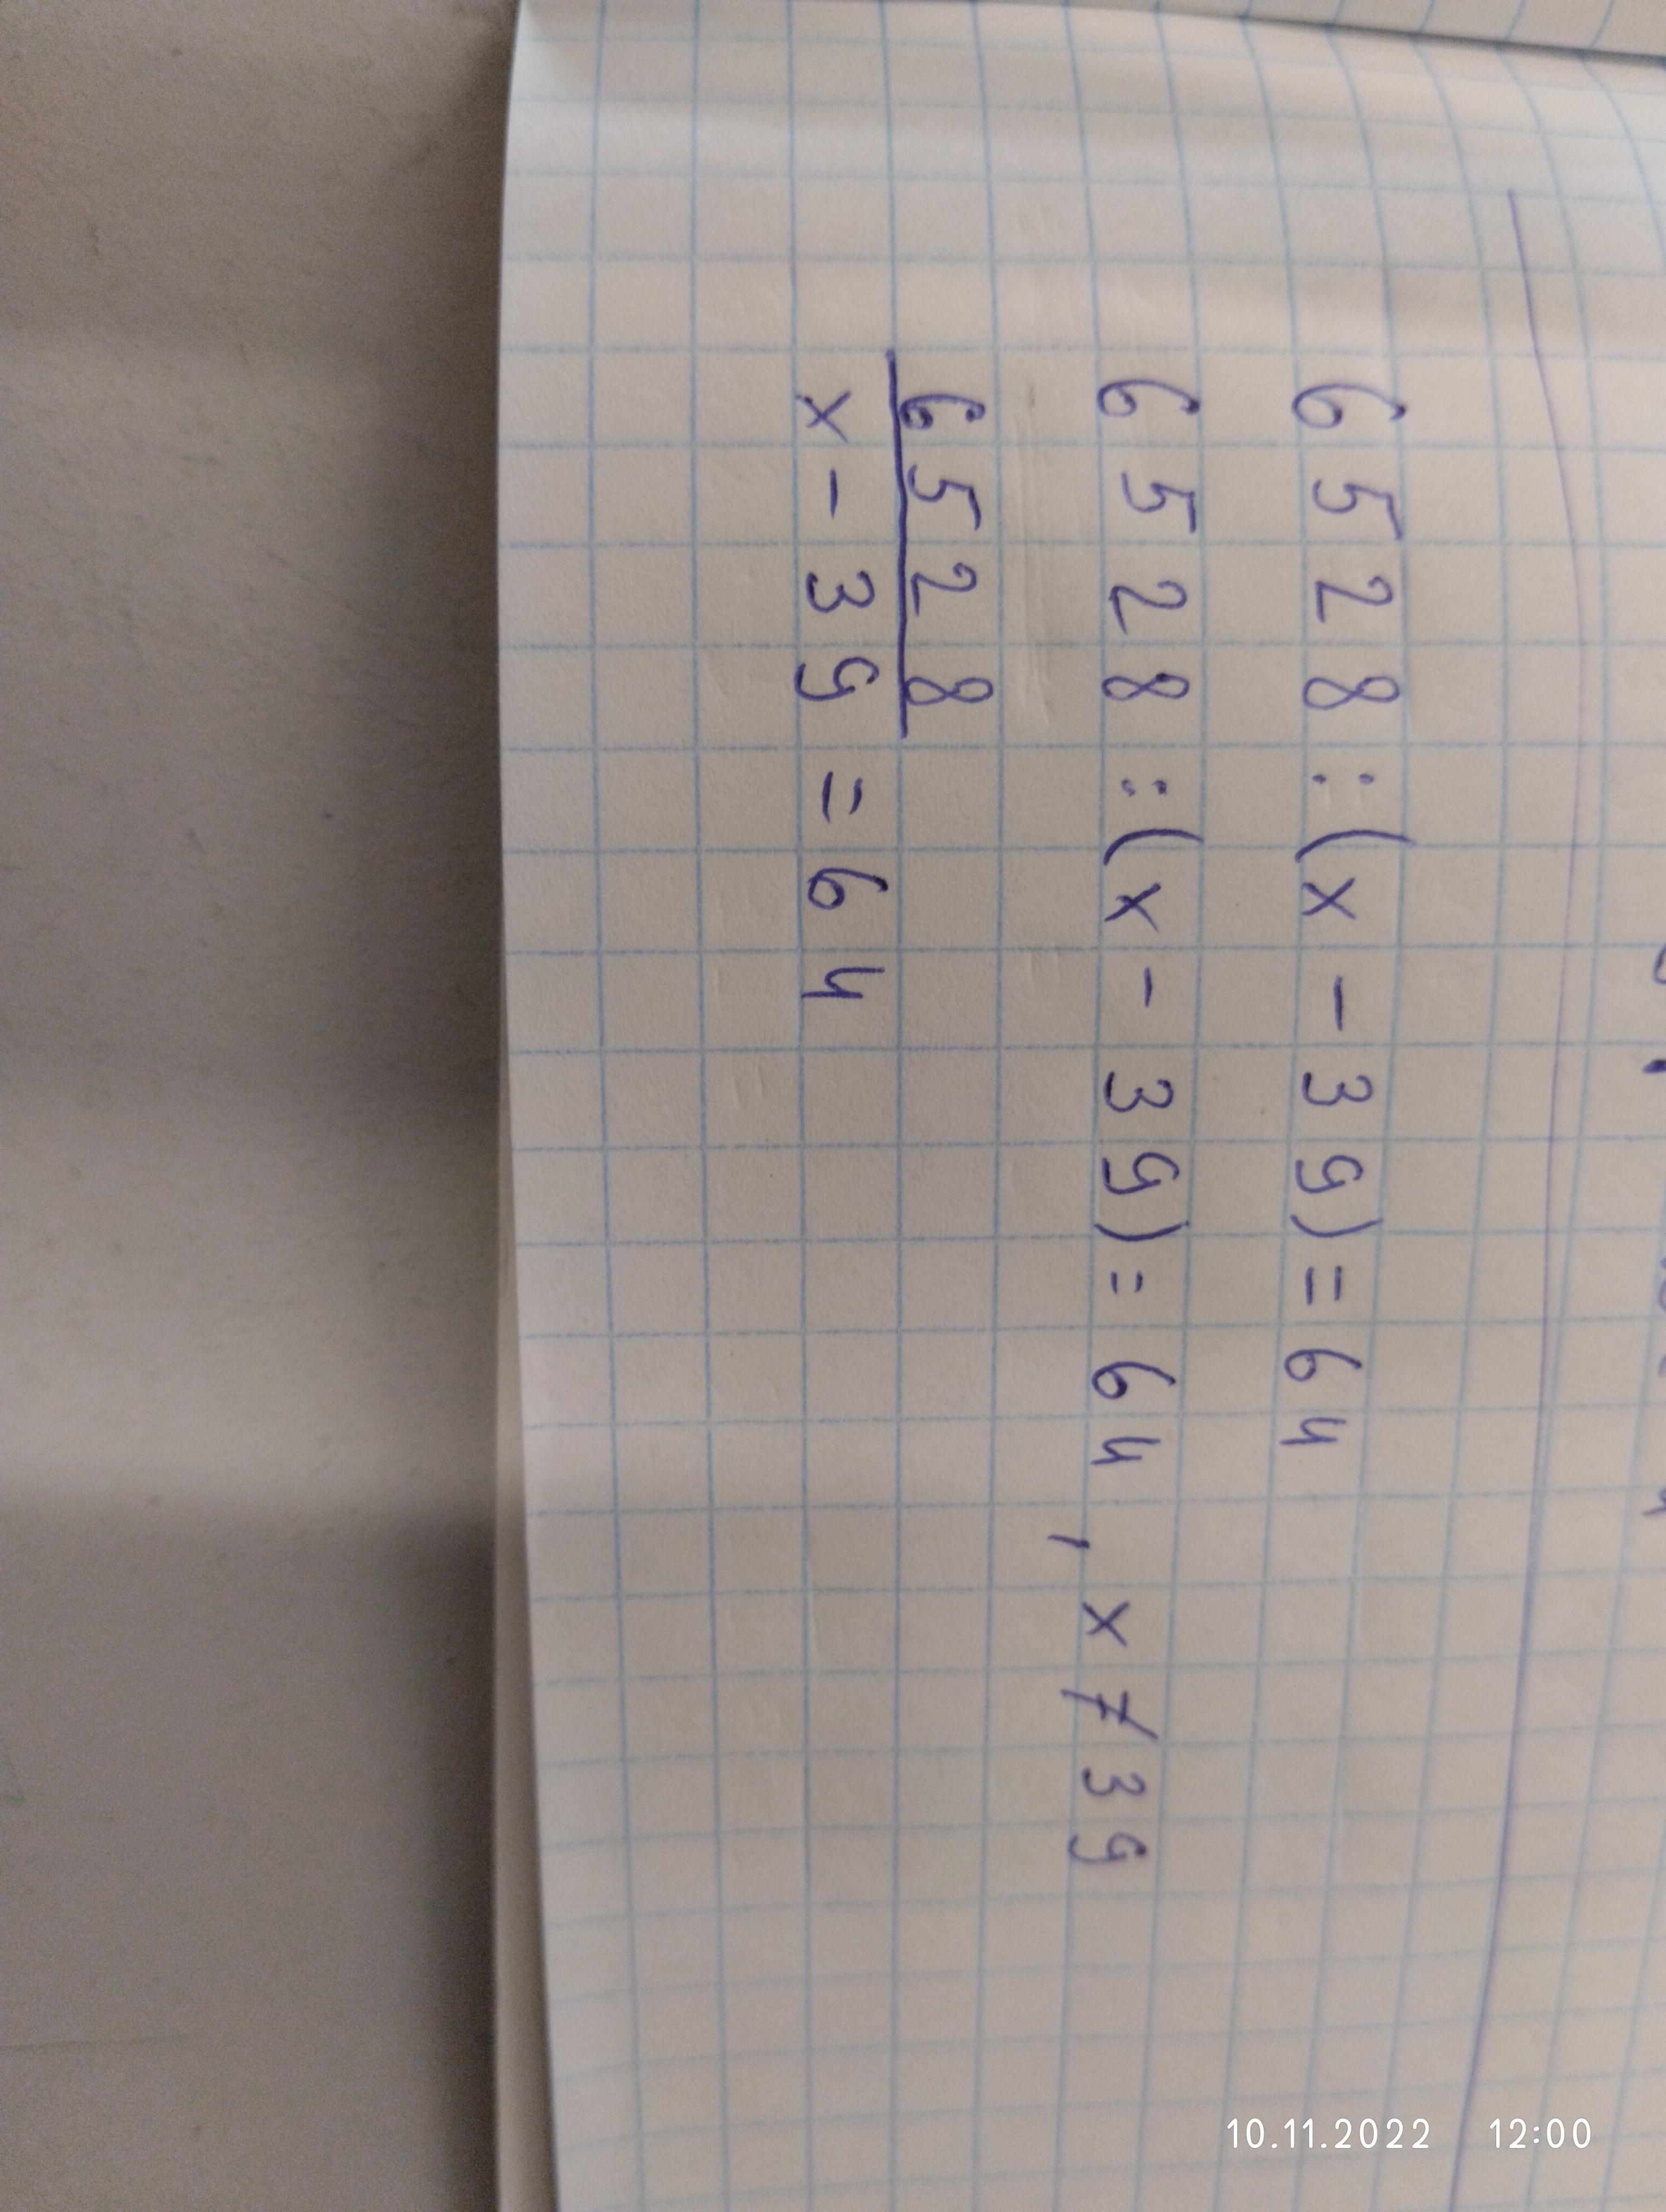 6528:(x-39)=64
6528:(x-39)=64, x≠39
6528
x-39=64
10.11.2022 12:00